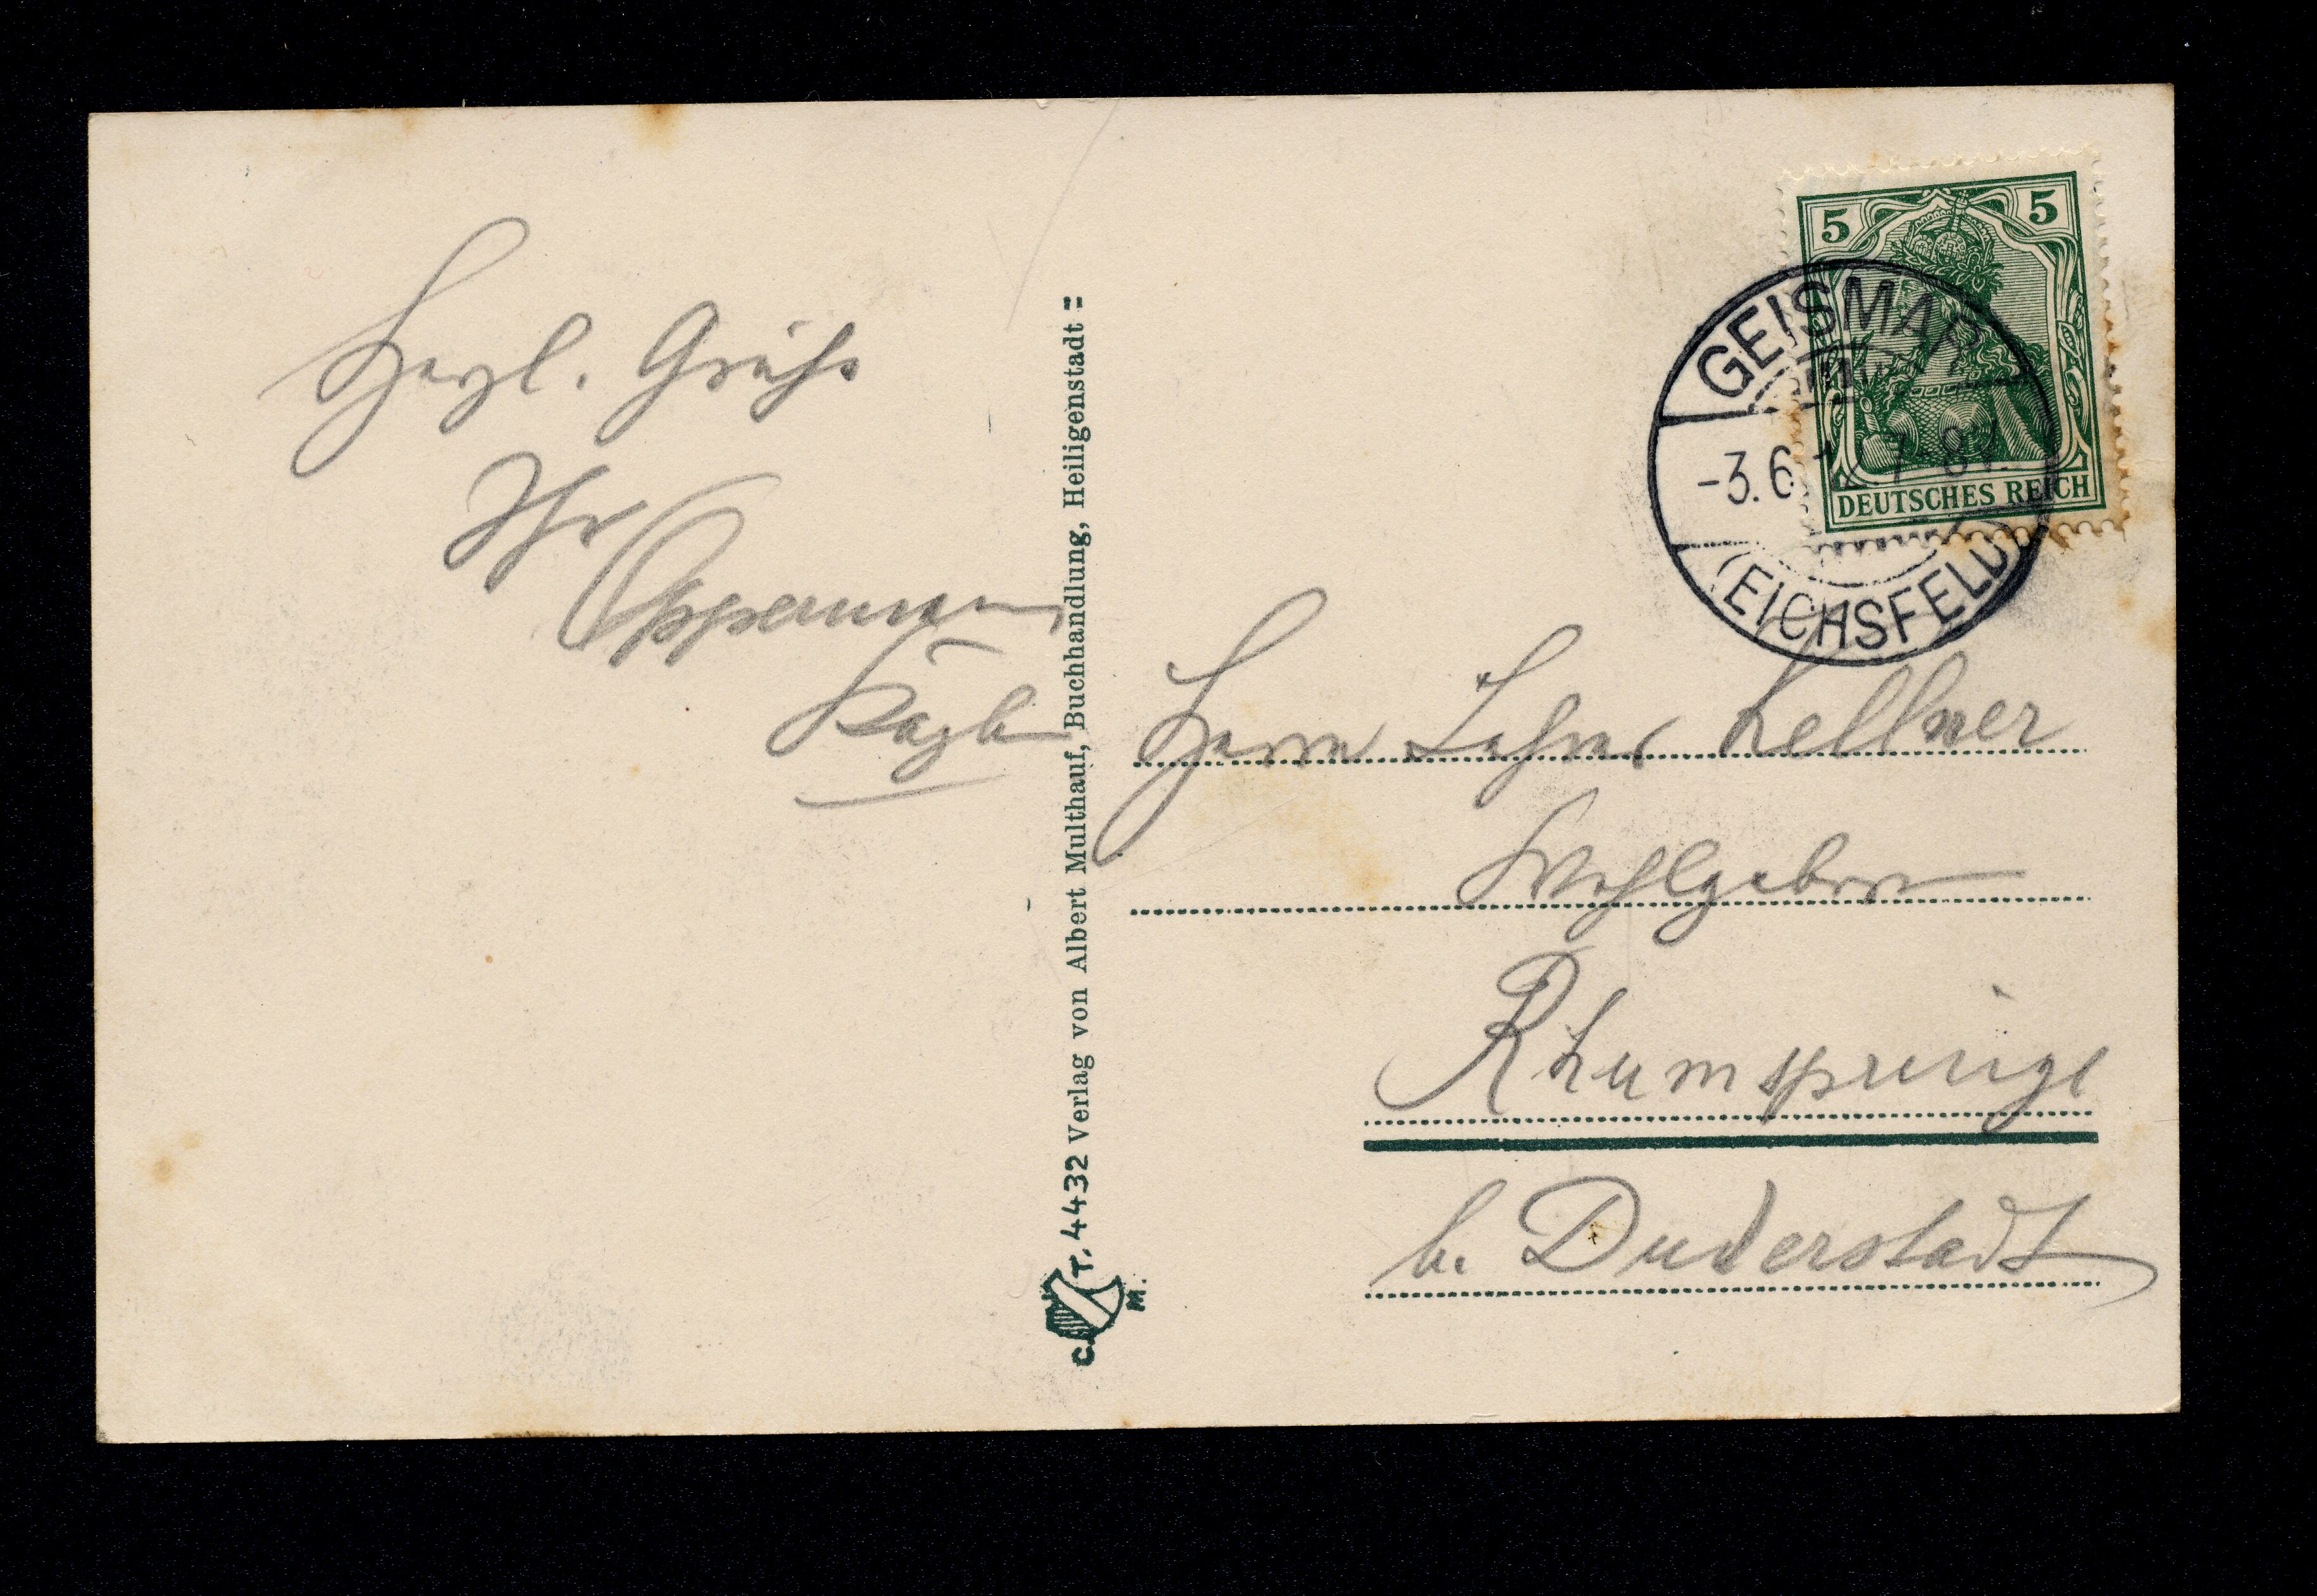 Herzl. Grüße
Ihr
Oppermann
Verlag von Albert Multhauf, Buchhandlung, Heiligenstadt
C. T. M. 4432
5 5
DEUTSCHES REICH
GEISMAR
-3.6.12. 7-8V.
(EICHSFELD)
Herrn Lehrer Kellner
Wohlgeboren
Rhumspringe
b. Duderstadt